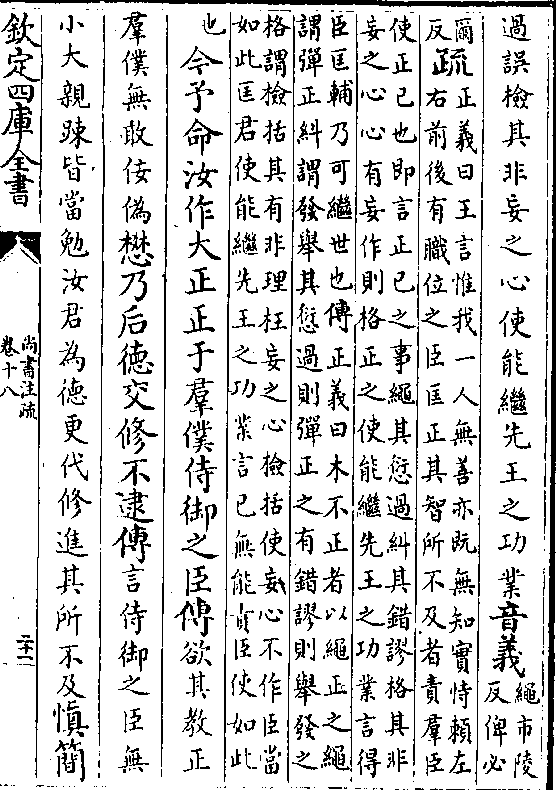 過誤檢其非妄之心使能繼先王之功業音義繩市陵
反俾必
爾反疏正義曰王言惟我一人無善亦既無知實恃賴左
右前後有職位之臣匡正其智所不及者責羣臣
使正己也即言正己之事繩其愆過糾其錯謬格其非
妄之心心有妄作則格正之使能繼先王之功業言得
臣匡輔乃可繼世也傳正義曰木不正者以繩正之繩
謂彈正糾謂發舉其愆過則彈正之有錯謬則舉發之
格謂檢括其有非理枉妄之心檢括使妄心不作臣當
如此匡君使能繼先王之功業言已無能責臣使如此
也今予命汝作大正正于羣僕侍御之臣傳欲其教正
羣僕無敢佞偽懋乃后德交修不逮傳言侍御之臣無
小大親疎皆當勉汝君為德更代修進其所不及慎簡
欽定四庫全書
尚書注疏
卷十八
二十二